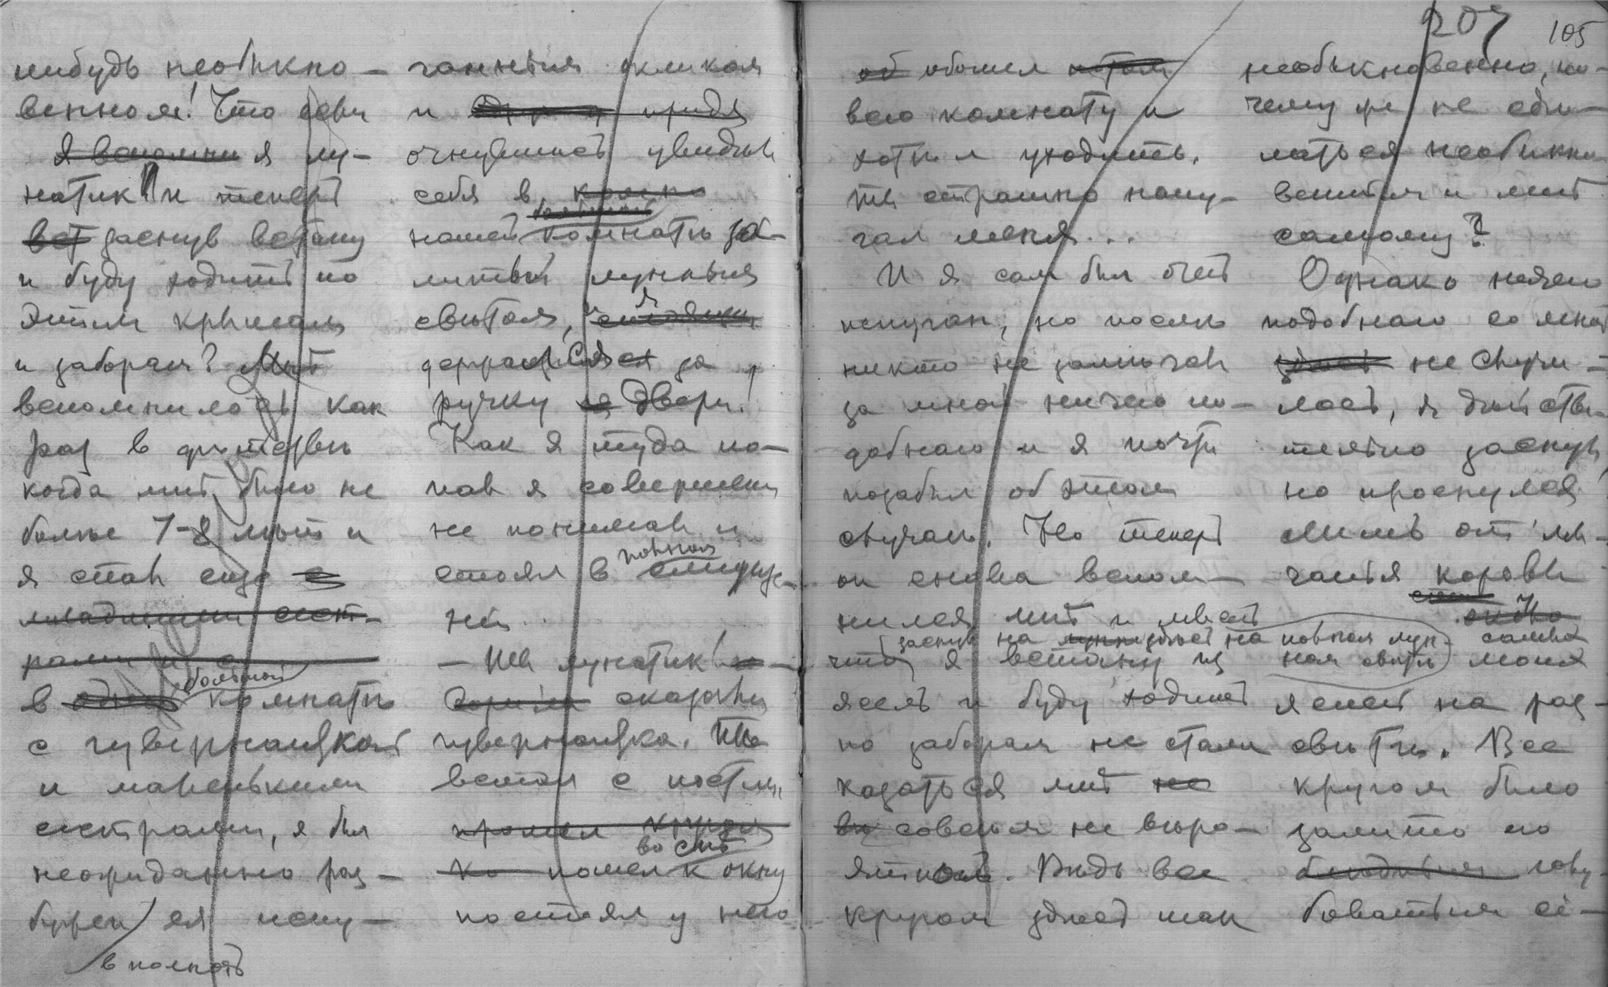 207 105
нибудь необыкно-
венное! Что если
я вспомни я лу-
натик и теперь
вст заснув встану
и буду ходить по
этим крышам
и заборам? Мне
вспомнилось как
раз в детстве
когда мне было не
более 7-8 лет и
я спал еще с
младшими сест-
рами и с
в одной большой комнате
с гувернанткой
и маленькими
сестрами, я был
неожиданно раз-
бужен ея испу-
в полночь
ганным окликом
и придя
очнувшись увидел
себя в комна
нашей большой комнаты за-
литой лунным
светом, я
держался за
ручку двери!
Как я туда по-
пал я совершенно
не понимал и
стоял в полном смуще-
нии.
— Ты лунатик!
сказала
гувернантка. Ты
встал с постели,
прошел кругом
во сне
пошел к окну
постоял у него
об обошел потом
всю комнату и
хотел уходить.
ты страшно напу-
гал меня...
И я сам был очень
испуган, но после
никто не замечал
за мной ничего по-
добного и я почти
позабыл об этом
случае. Но теперь
он снова вспом-
нился мне и мысль
что я заснув на встану из
яслей и буду ходить
по заборам не стала
казаться мне не
совсем не веро-
ятной. Ведь все
кругом здесь так
необыкновенно, по-
чему же не сде-
латься необыкно-
венным и мне
самому?
Однако ничего
подобного со мной
здесь не случи-
лось, я действи-
тельно заснул,
но проснулся
лишь от мы-
чанья коровы
около
самых
на полном лун-
ном свете моих
яслей на раз-
свете. Все
кругом было
залито го-
бледным голу-
боватым се-